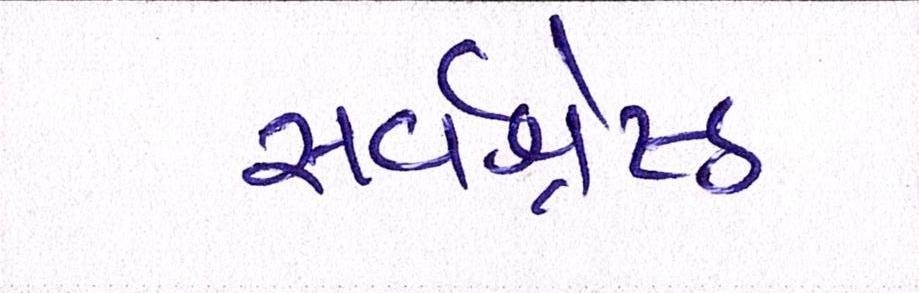 સર્વશ્રેષ્ઠ